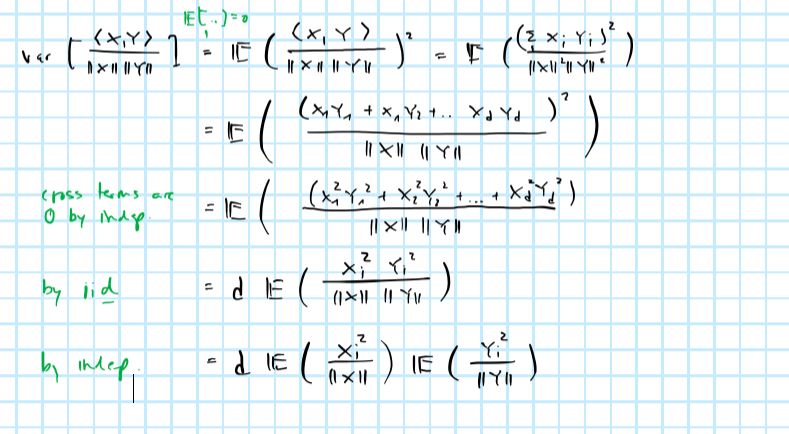 𝔼[..]=0
var [ ⟨X,Y⟩ / ‖X‖ ‖Y‖ ] = 𝔼 ( ⟨X,Y⟩ / ‖X‖ ‖Y‖ )² = 𝔼 ( (Σ Xᵢ Yᵢ)² / ‖X‖² ‖Y‖² )
= 𝔼 ( (X₁Y₁ + X₁Y₂ + .. X_d Y_d)² / ‖X‖ ‖Y‖ )
cross terms are 0 by indep. = 𝔼 ( (X₁²Y₁² + X₂²Y₂² + ... + X_d²Y_d²) / ‖X‖ ‖Y‖ )
by iid = d 𝔼 ( Xᵢ² Yᵢ² / ‖X‖ ‖Y‖ )
by indep. = d 𝔼 ( Xᵢ² / ‖X‖ ) 𝔼 ( Yᵢ² / ‖Y‖ )